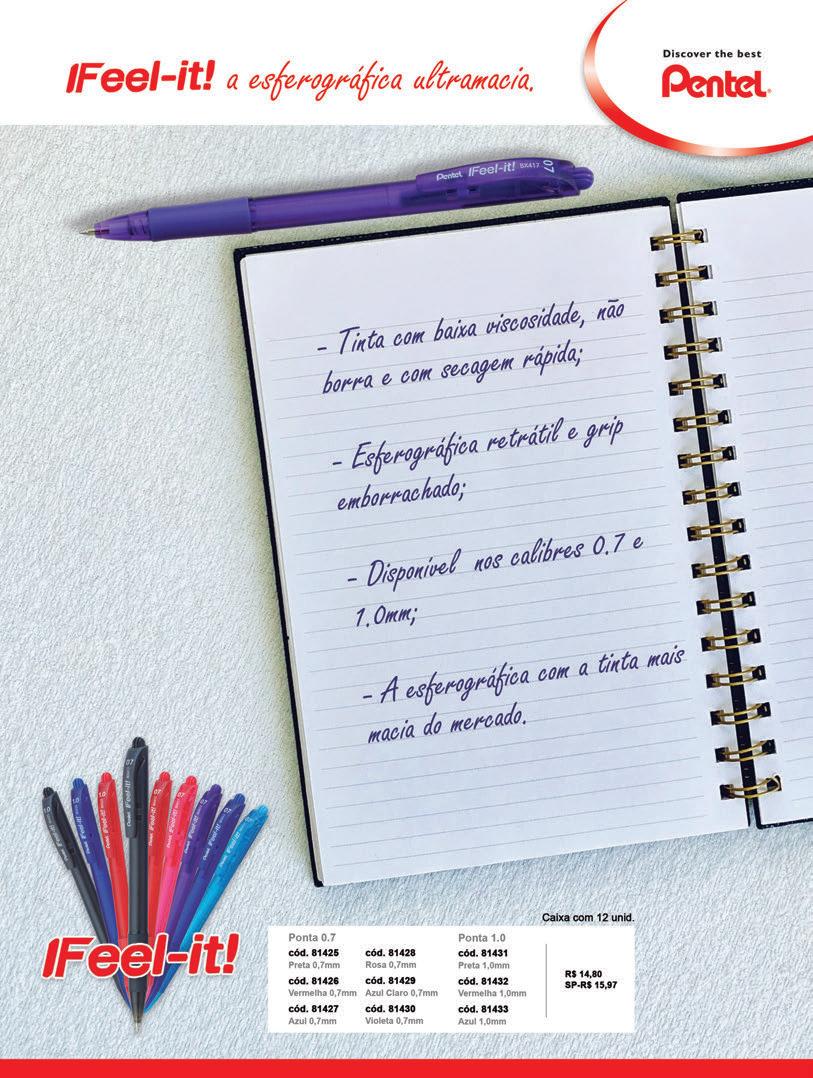 IFeel-it! a esferográfica ultramacia.
Discover the best
Pentel®
Pentel IFeel-it! BX417 07
- Tinta com baixa viscosidade, não
borra e com secagem rápida;
- Esferográfica retrátil e grip
emborrachado;
- Disponível nos calibres 0.7 e
1.0mm;
- A esferográfica com a tinta mais
macia do mercado.
IFeel-it!
Caixa com 12 unid.
Ponta 0.7 Ponta 1.0
cód. 81425 cód. 81428 cód. 81431
Preta 0,7mm Rosa 0,7mm Preta 1,0mm
cód. 81426 cód. 81429 cód. 81432
Vermelha 0,7mm Azul Claro 0,7mm Vermelha 1,0mm
cód. 81427 cód. 81430 cód. 81433
Azul 0,7mm Violeta 0,7mm Azul 1,0mm
R$ 14,80
SP-R$ 15,97